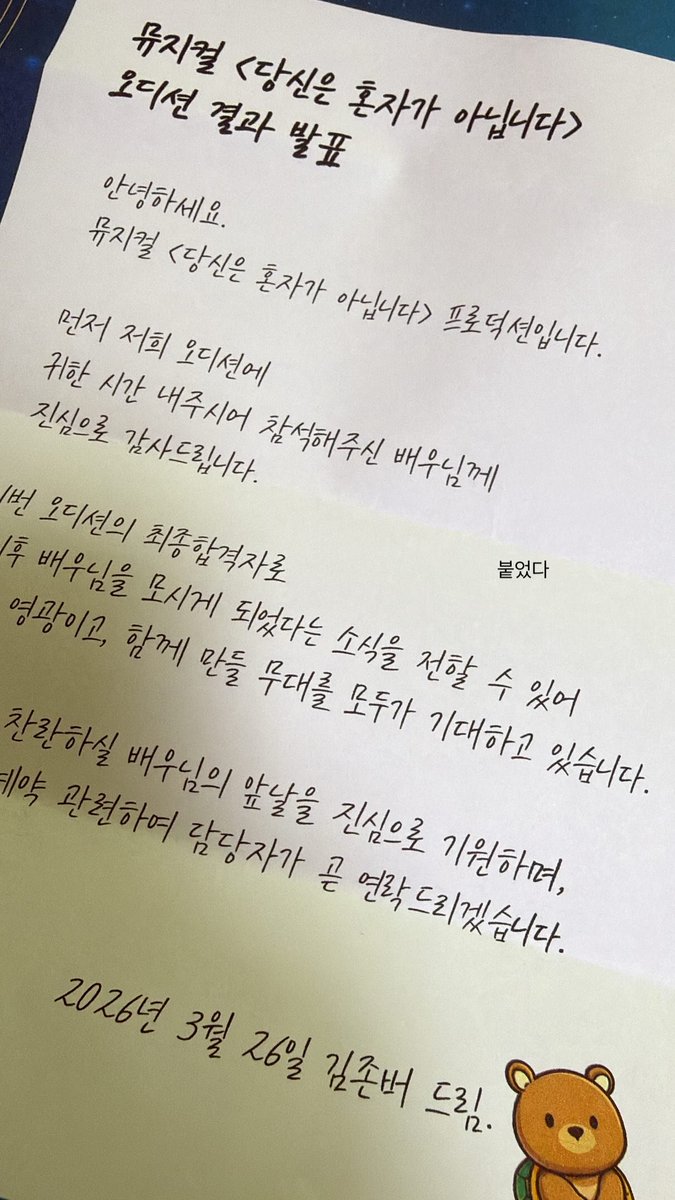 뮤지컬 <당신은 혼자가 아닙니다>
오디션 결과 발표
안녕하세요.
뮤지컬 <당신은 혼자가 아닙니다> 프로덕션입니다.
먼저 저희 오디션에
귀한 시간 내주시어 참석해주신 배우님께
진심으로 감사드립니다.
이번 오디션의 최종합격자로
이후 배우님을 모시게 되었다는 소식을 전할 수 있어
영광이고, 함께 만들 무대를 모두가 기대하고 있습니다.
붙었다
찬란하실 배우님의 앞날을 진심으로 기원하며,
계약 관련하여 담당자가 곧 연락드리겠습니다.
2026년 3월 26일 김존버 드림.